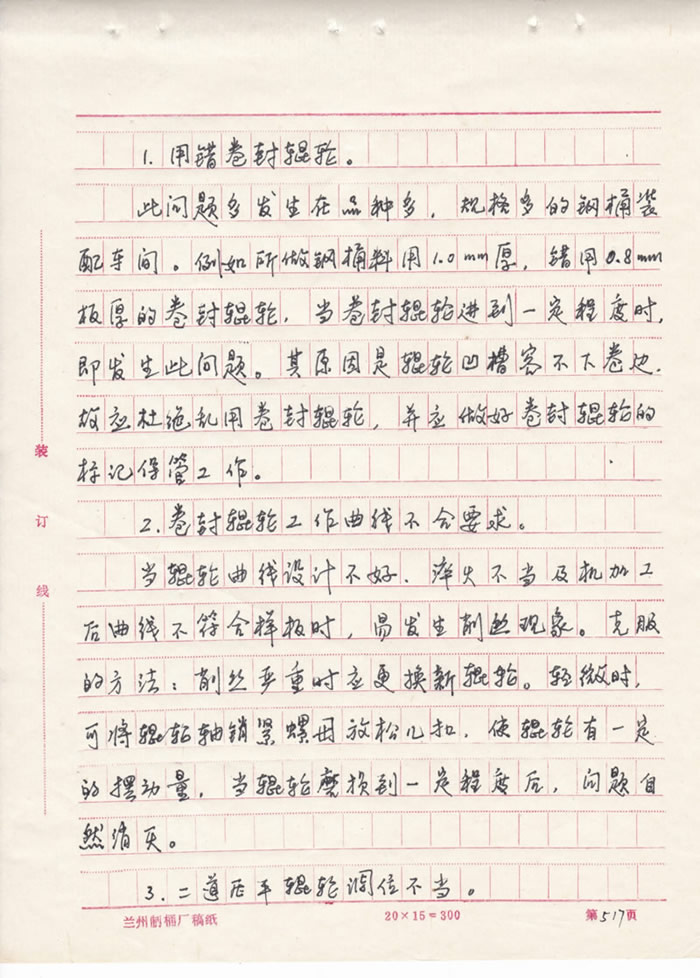 1. 用错卷封辊轮。
此问题多发生在品种多，规格多的钢桶装
配车间。例如所做钢桶料用1.0mm厚，错用0.8mm
板厚的卷封辊轮，当卷封辊轮进到一定程度时，
即发生此问题。其原因是辊轮凹槽容不下卷边.
故应杜绝乱用卷封辊轮，并应做好卷封辊轮的
标记保管工作。
2. 卷封辊轮工作曲线不合要求。
当辊轮曲线设计不好．淬火不当及机加工
后曲线不符合样板时，易发生削丝现象。克服
的方法：削丝严重时应更换新辊轮。轻微时，
可将辊轮轴销紧螺母放松几扣．使辊轮有一定
的摆动量，当辊轮磨损到一定程度后，问题自
然消灭。
3. 二道压平辊轮调位不当。
装订线
兰州制桶厂稿纸 20×15=300 第517页